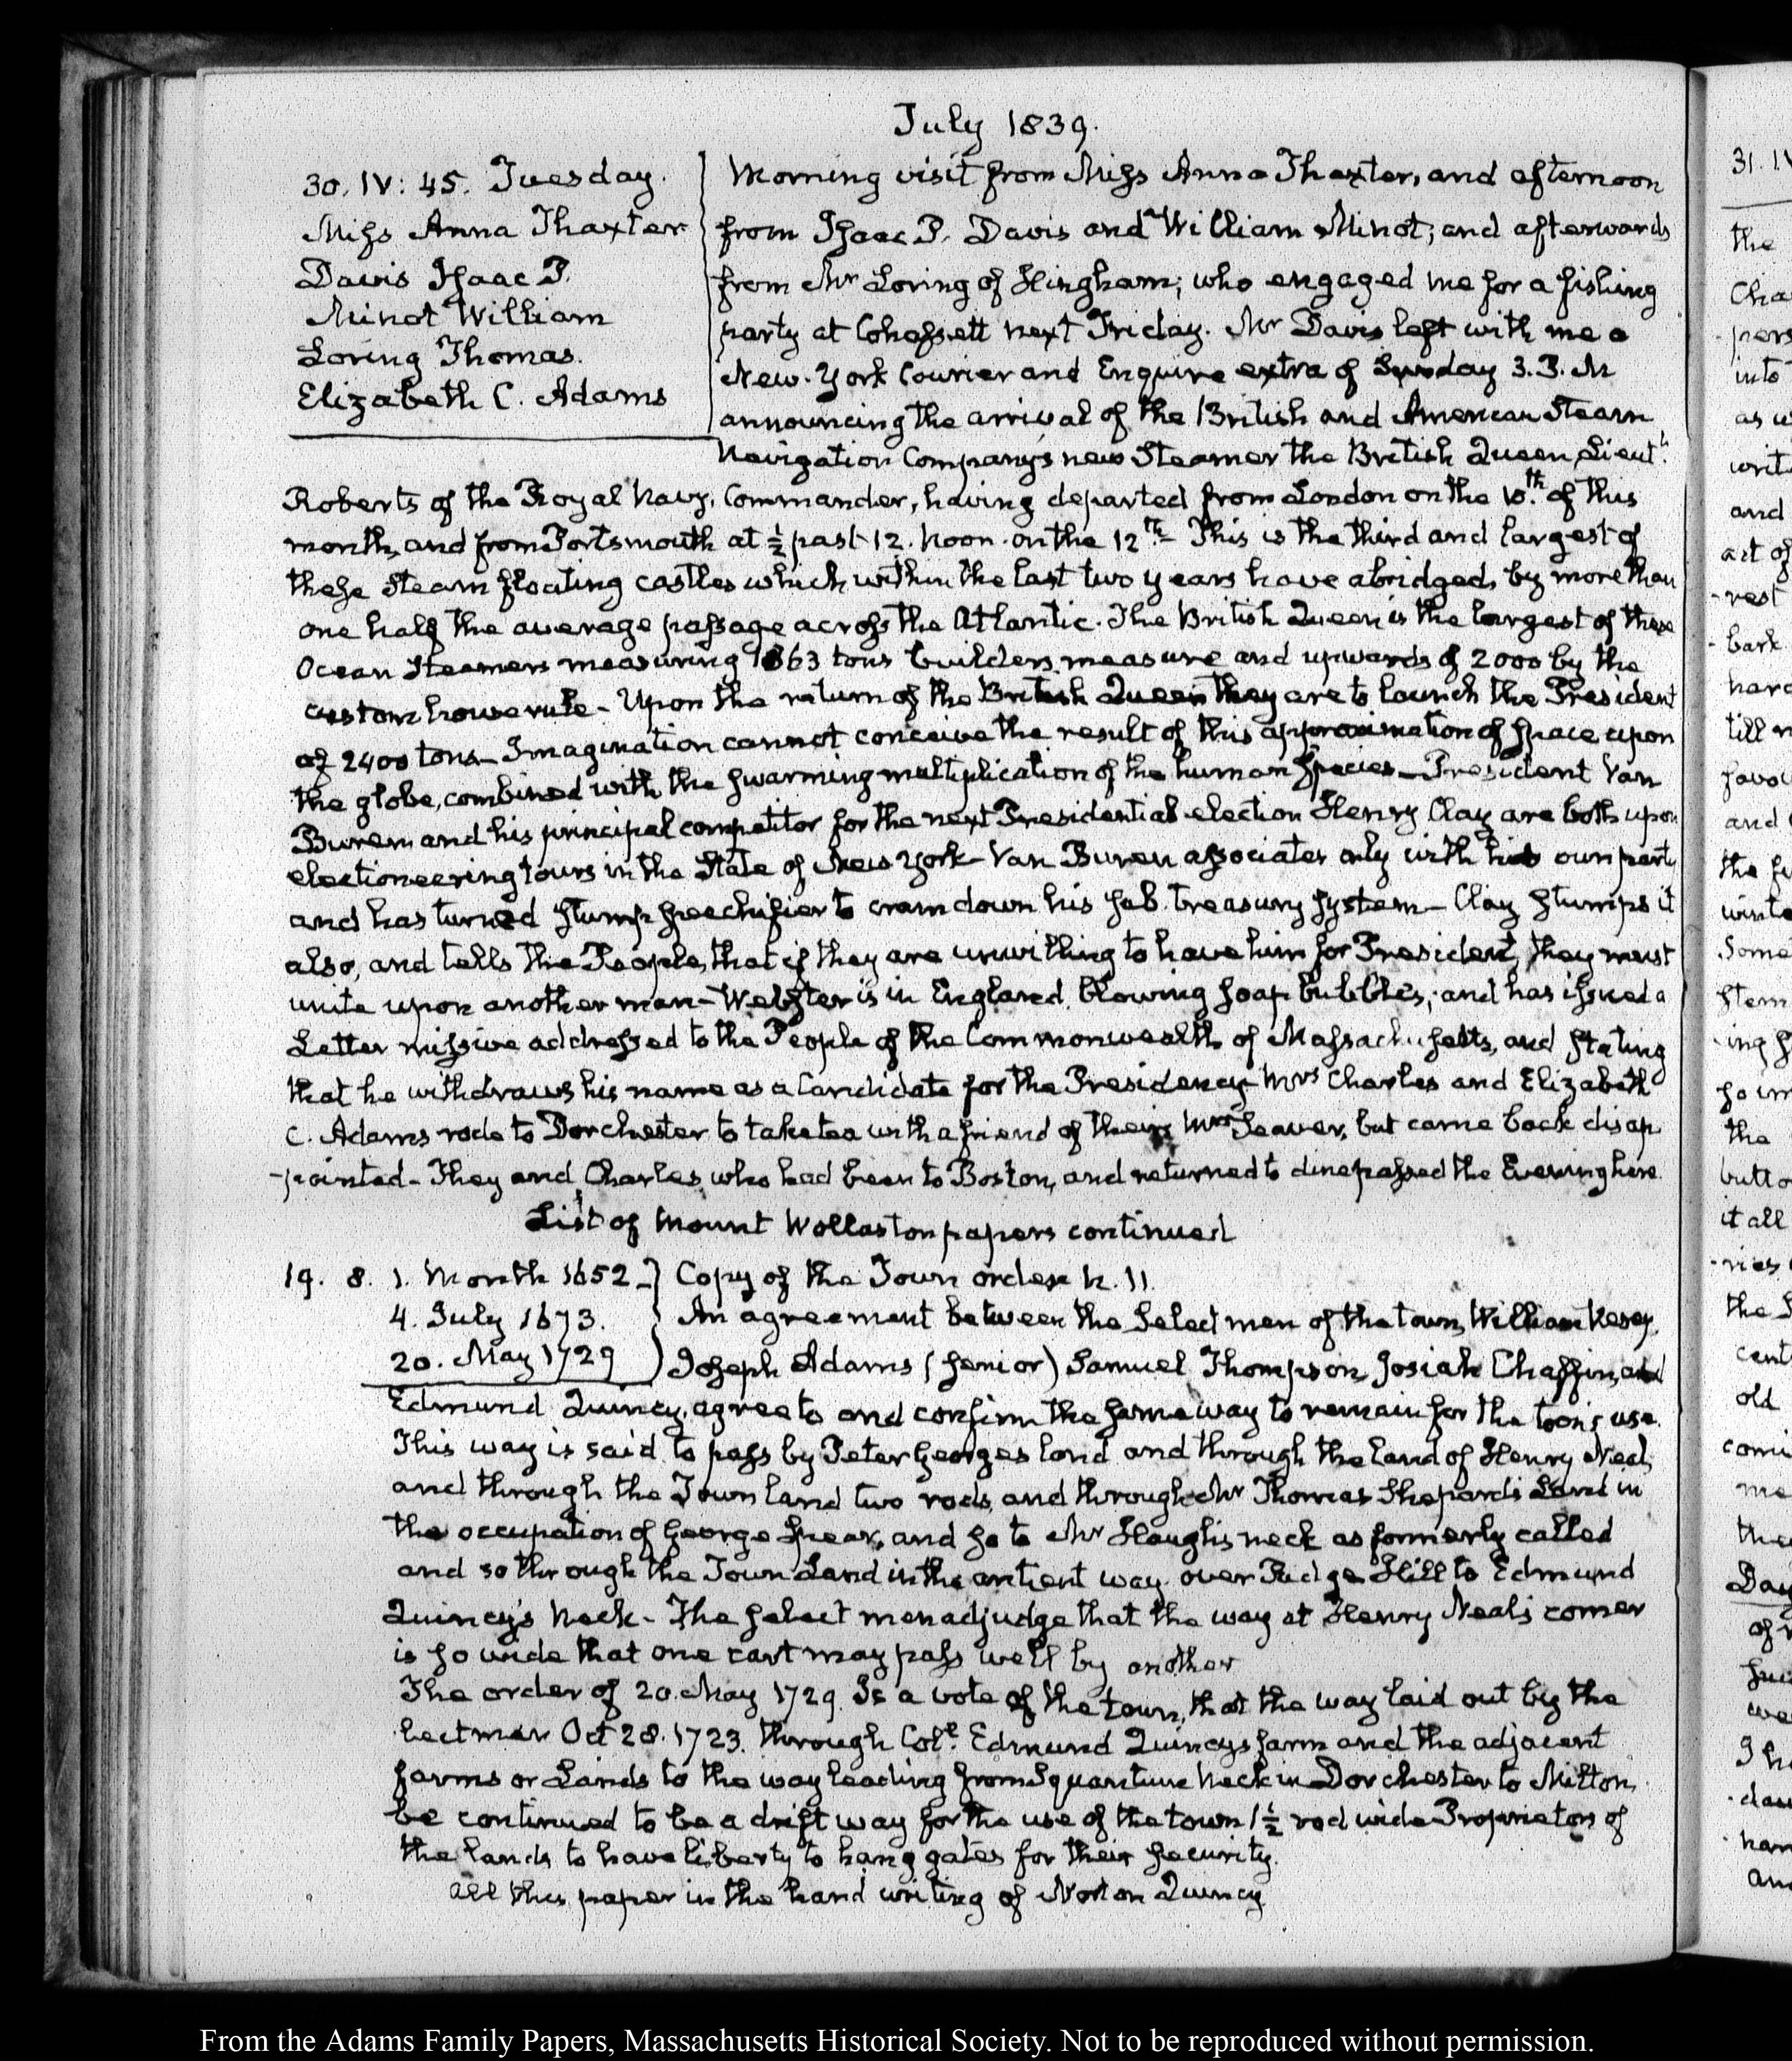 July 1839.
30. IV: 45. Tuesday.
Miss Anna Thaxter
Davis Isaac P.
Minot William
Loring Thomas.
Elizabeth C. Adams
Morning visit from Miss Anna Thaxter, and afternoon
from Isaac P. Davis and William Minot; and afterwards
from Mr Loring of Hingham; who engaged me for a fishing
party at Cohassett next Friday. Mr Davis left with me a
New-York Courier and Enquirer extra of Sunday 3. P. M
announcing the arrival of the British and American Steam
Navigation Company's new Steamer the British Queen, Lieut.t
Roberts of the Royal Navy, Commander, having departed from London on the 10.th of this
month, and from Portsmouth at ½ past 12. Noon on the 12th- This is the third and largest of
these Steam floating castles which within the last two years have abridged, by more than
one half the average passage across the Atlantic. The British Queen is the largest of these
Ocean Steamers measuring 1863 tons builders measure and upwards of 2000 by the
custom house rule- Upon the return of the British Queen they are to launch the President
of 2400 tons- Imagination cannot conceive the result of this approximation of space upon
the globe, combined with the swarming multiplication of the human species- President Van
Buren and his principal competitor for the next Presidential election Henry Clay are both upon
electioneering tours in the State of New York- Van Buren associates only with his own party
and has turned stump speechifier to cram down his sub-treasury system- Clay stumps it
also, and tells the People, that if they are unwilling to have him for President, they must
unite upon another man- Webster is in England, blowing soap bubbles; and has issued a
Letter missive addressed to the People of the Commonwealth of Massachusetts, and stating
that he withdraws his name as a Candidate for the Presidency- Mrs Charles and Elizabeth
C. Adams rode to Dorchester to take tea with a friend of theirs Mrs Seaver, but came back disap
-pointed- They and Charles who had been to Boston, and returned to dine passed the Evening here.
List of Mount Wollaston papers continued
19. 8. 1. Month 1652 - } Copy of the Town orders h. 11.
4. July 1673. } An agreement between the Select men of the town, William Vesey,
20. May 1729 } Joseph Adams (senior) Samuel Thompson, Josiah Chaffin, and
Edmund Quincy, agree to and confirm the same way to remain for the town's use.
This way is said to pass by Peter Georges land and through the land of Henry Neal,
and through the Town land two rods, and through Mr Thomas Shepards Land in
the occupation of George Spear, and so to Mr Haugh's neck as formerly called
and so through the Town Land in the antient way over Hill to Edmund
Quincy's Neck- The select men adjudge that the way at Henry Neal's corner
is so wide that one cart may pass well by another
The order of 20. May 1729. Is a vote of the town, that the way laid out by the
lect men Oct 28. 1723. through Coll. Edmund Quincys farm and the adjacent
farms or Lands to the way leading from Squantum Neck in Dorchester to Milton,
be continued to be a drift way for the use of the town 1½ rod wide Proprietors of
the lands to have liberty to hang gates for their security.
All this paper in the hand writing of Norton Quincy
From the Adams Family Papers, Massachusetts Historical Society. Not to be reproduced without permission.